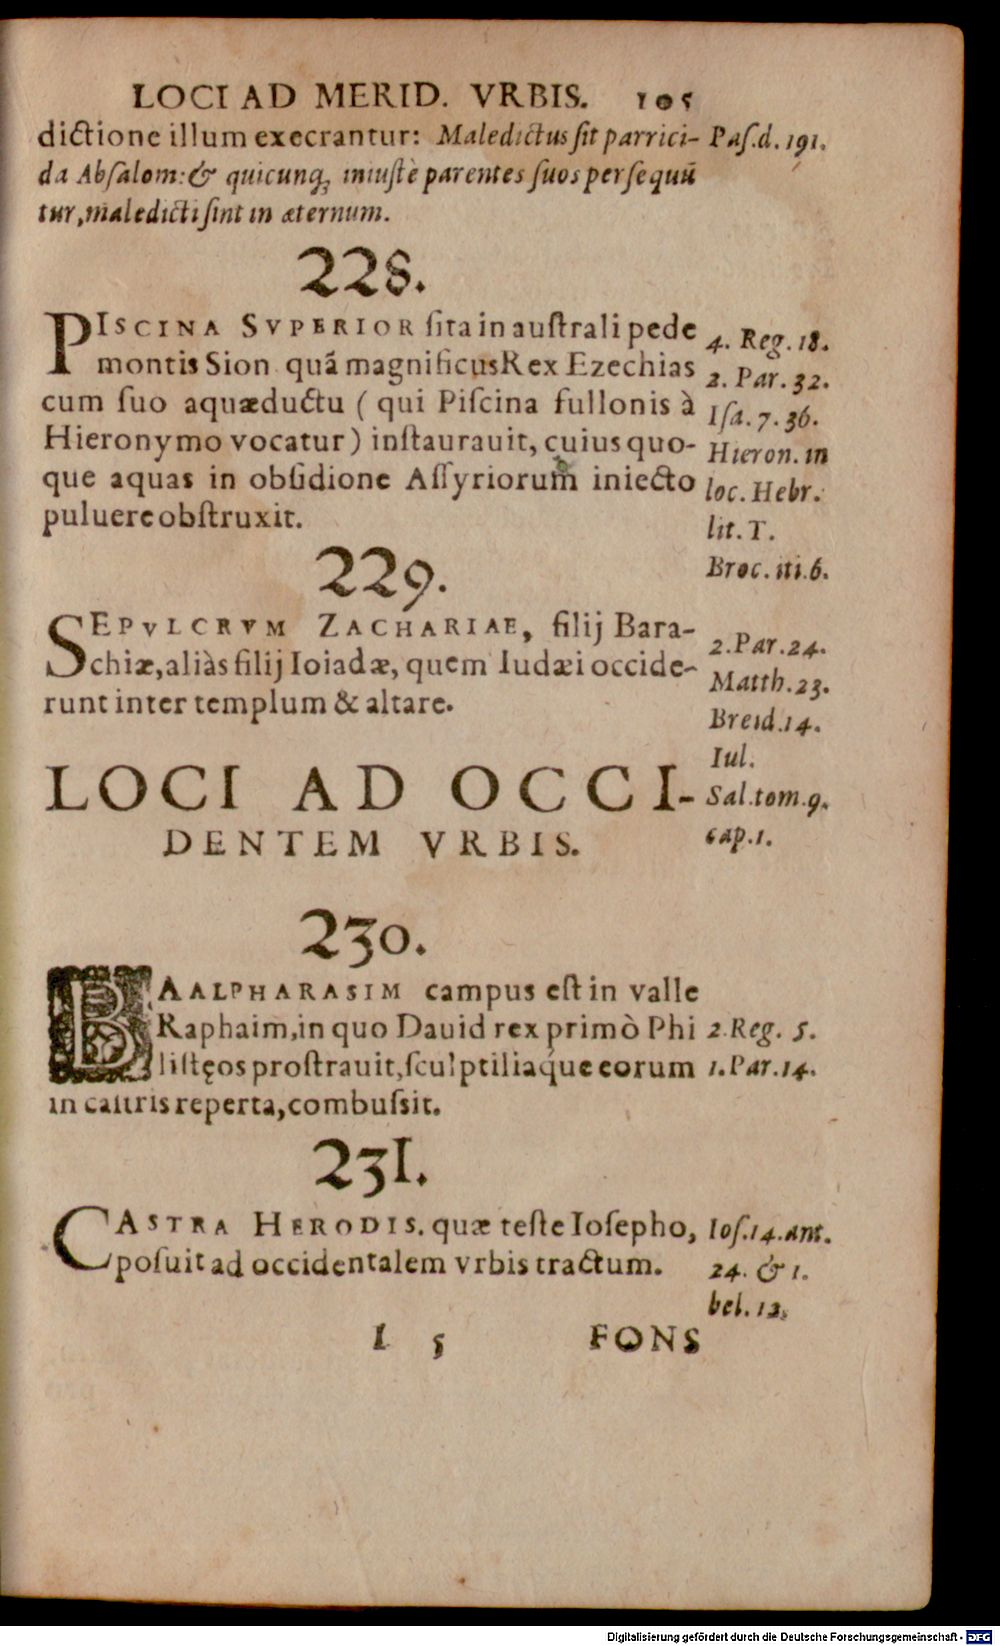 LOCI AD MERID. VRBIS. 105
dictione illum execrantur: Maledictus ſit parrici- Paſ.d.191.
da Abſalom:& quicunq; iniuſtè parentes ſuos perſequũ
tur,maledicti ſint in æternum.
228.
PISCINA SVPERIOR ſita in auſtrali pede
montis Sion quā magnificus Rex Ezechias
cum ſuo aquæductu ( qui Piſcina fullonis à
Hieronymo vocatur) inſtaurauit, cuius quo-
que aquas in obſidione Aſſyriorum iniecto
puluere obſtruxit.
4. Reg. 18.
2. Par. 32.
Iſa. 7. 36.
Hieron. in
loc. Hebr.
lit. T.
Broc. iti. 6.
229.
SEPVLCRVM ZACHARIAE, filij Bara-
chiæ,aliàs filij Ioiadæ, quem Iudæi occide-
runt inter templum & altare.
2.Par.24.
Matth.23.
Breid.14.
Iul.
Sal.tom.9.
cap.1.
LOCI AD OCCI-
DENTEM VRBIS.
230.
BAALPHARASIM campus eſt in valle
Raphaim,in quo Dauid rex primò Phi
liſtęos proſtrauit,ſculptiliáque eorum
in caſtris reperta,combuſsit.
2.Reg. 5.
1.Par.14.
231.
CASTRA HERODIS. quæ teſte Ioſepho,
poſuit ad occidentalem vrbis tractum.
Ioſ.14.ant.
24. & 1.
bel. 12.
I 5 FONS
Digitalisierung gefördert durch die Deutsche Forschungsgemeinschaft - DFG